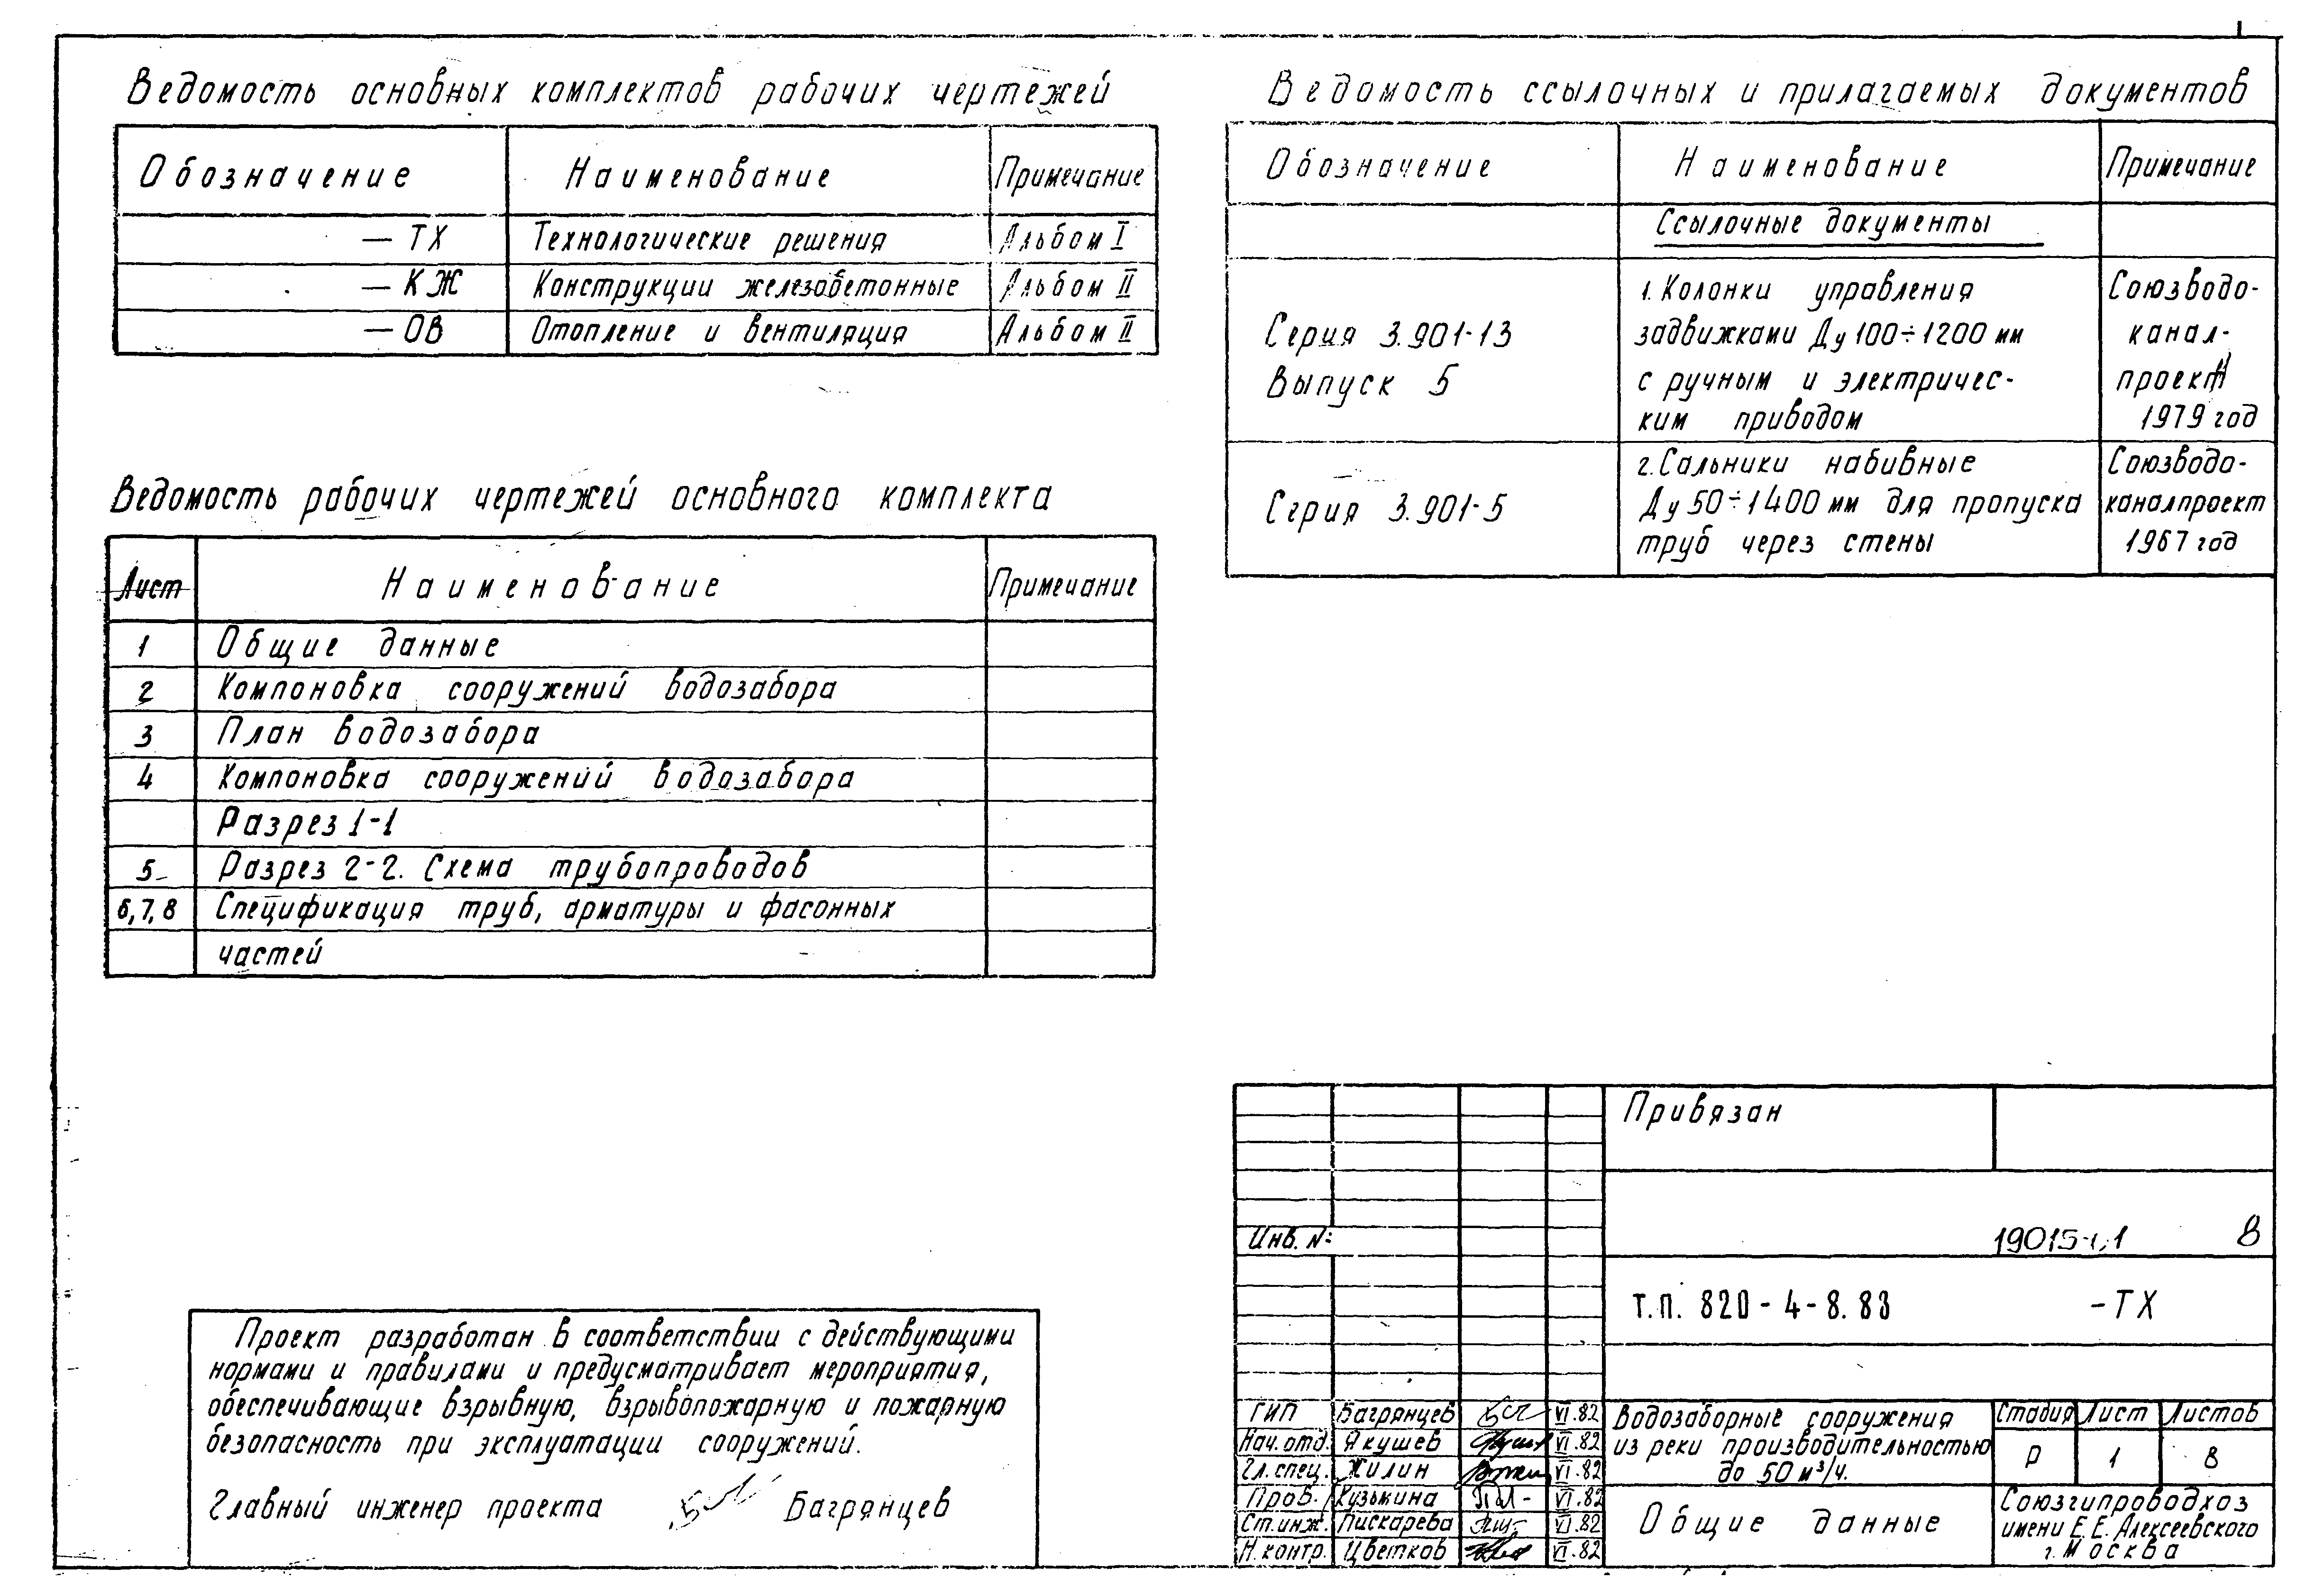 Ведомость основных комплектов рабочих чертежей
Обозначение Наименование Примечание
— ТХ Технологические решения Альбом I
— КЖ Конструкции железобетонные Альбом II
— ОВ Отопление и вентиляция Альбом II
Ведомость рабочих чертежей основного комплекта
Лист Наименование Примечание
1 Общие данные
2 Компоновка сооружений водозабора
3 План водозабора
4 Компоновка сооружений водозабора
Разрез 1-1
5 Разрез 2-2. Схема трубопроводов
6,7,8 Спецификация труб, арматуры и фасонных
частей
Проект разработан в соответствии с действующими
нормами и правилами и предусматривает мероприятия,
обеспечивающие взрывную, взрывопожарную и пожарную
безопасность при эксплуатации сооружений.
Главный инженер проекта Багрянцев
Ведомость ссылочных и прилагаемых документов
Обозначение Наименование Примечание
Ссылочные документы
Серия 3.901-13
Выпуск 5
1. Колонки управления
задвижками Ду 100÷1200 мм
с ручным и электричес-
ким приводом
Союзводо-
канал-
проект
1979 год
Серия 3.901-5
2. Сальники набивные
Ду 50÷1400 мм для пропуска
труб через стены
Союзводо-
каналпроект
1967 год
Привязан
Инв. №
8
Т.П. 820-4-8.83 -ТХ
ГИП Багрянцев VI.82
Нач. отд. Якушев VI.82
Гл. спец. Жилин VI.82
Пров. Кузьмина VI.82
Ст. инж. Пискарева VI.82
Н. контр. Цветков VI.82
Водозаборные сооружения
из реки производительностью
до 50 м³/ч.
Стадия Лист Листов
Р 1 8
Общие данные
Союзгипроводхоз
имени Е.Е. Алексеевского
г. Москва